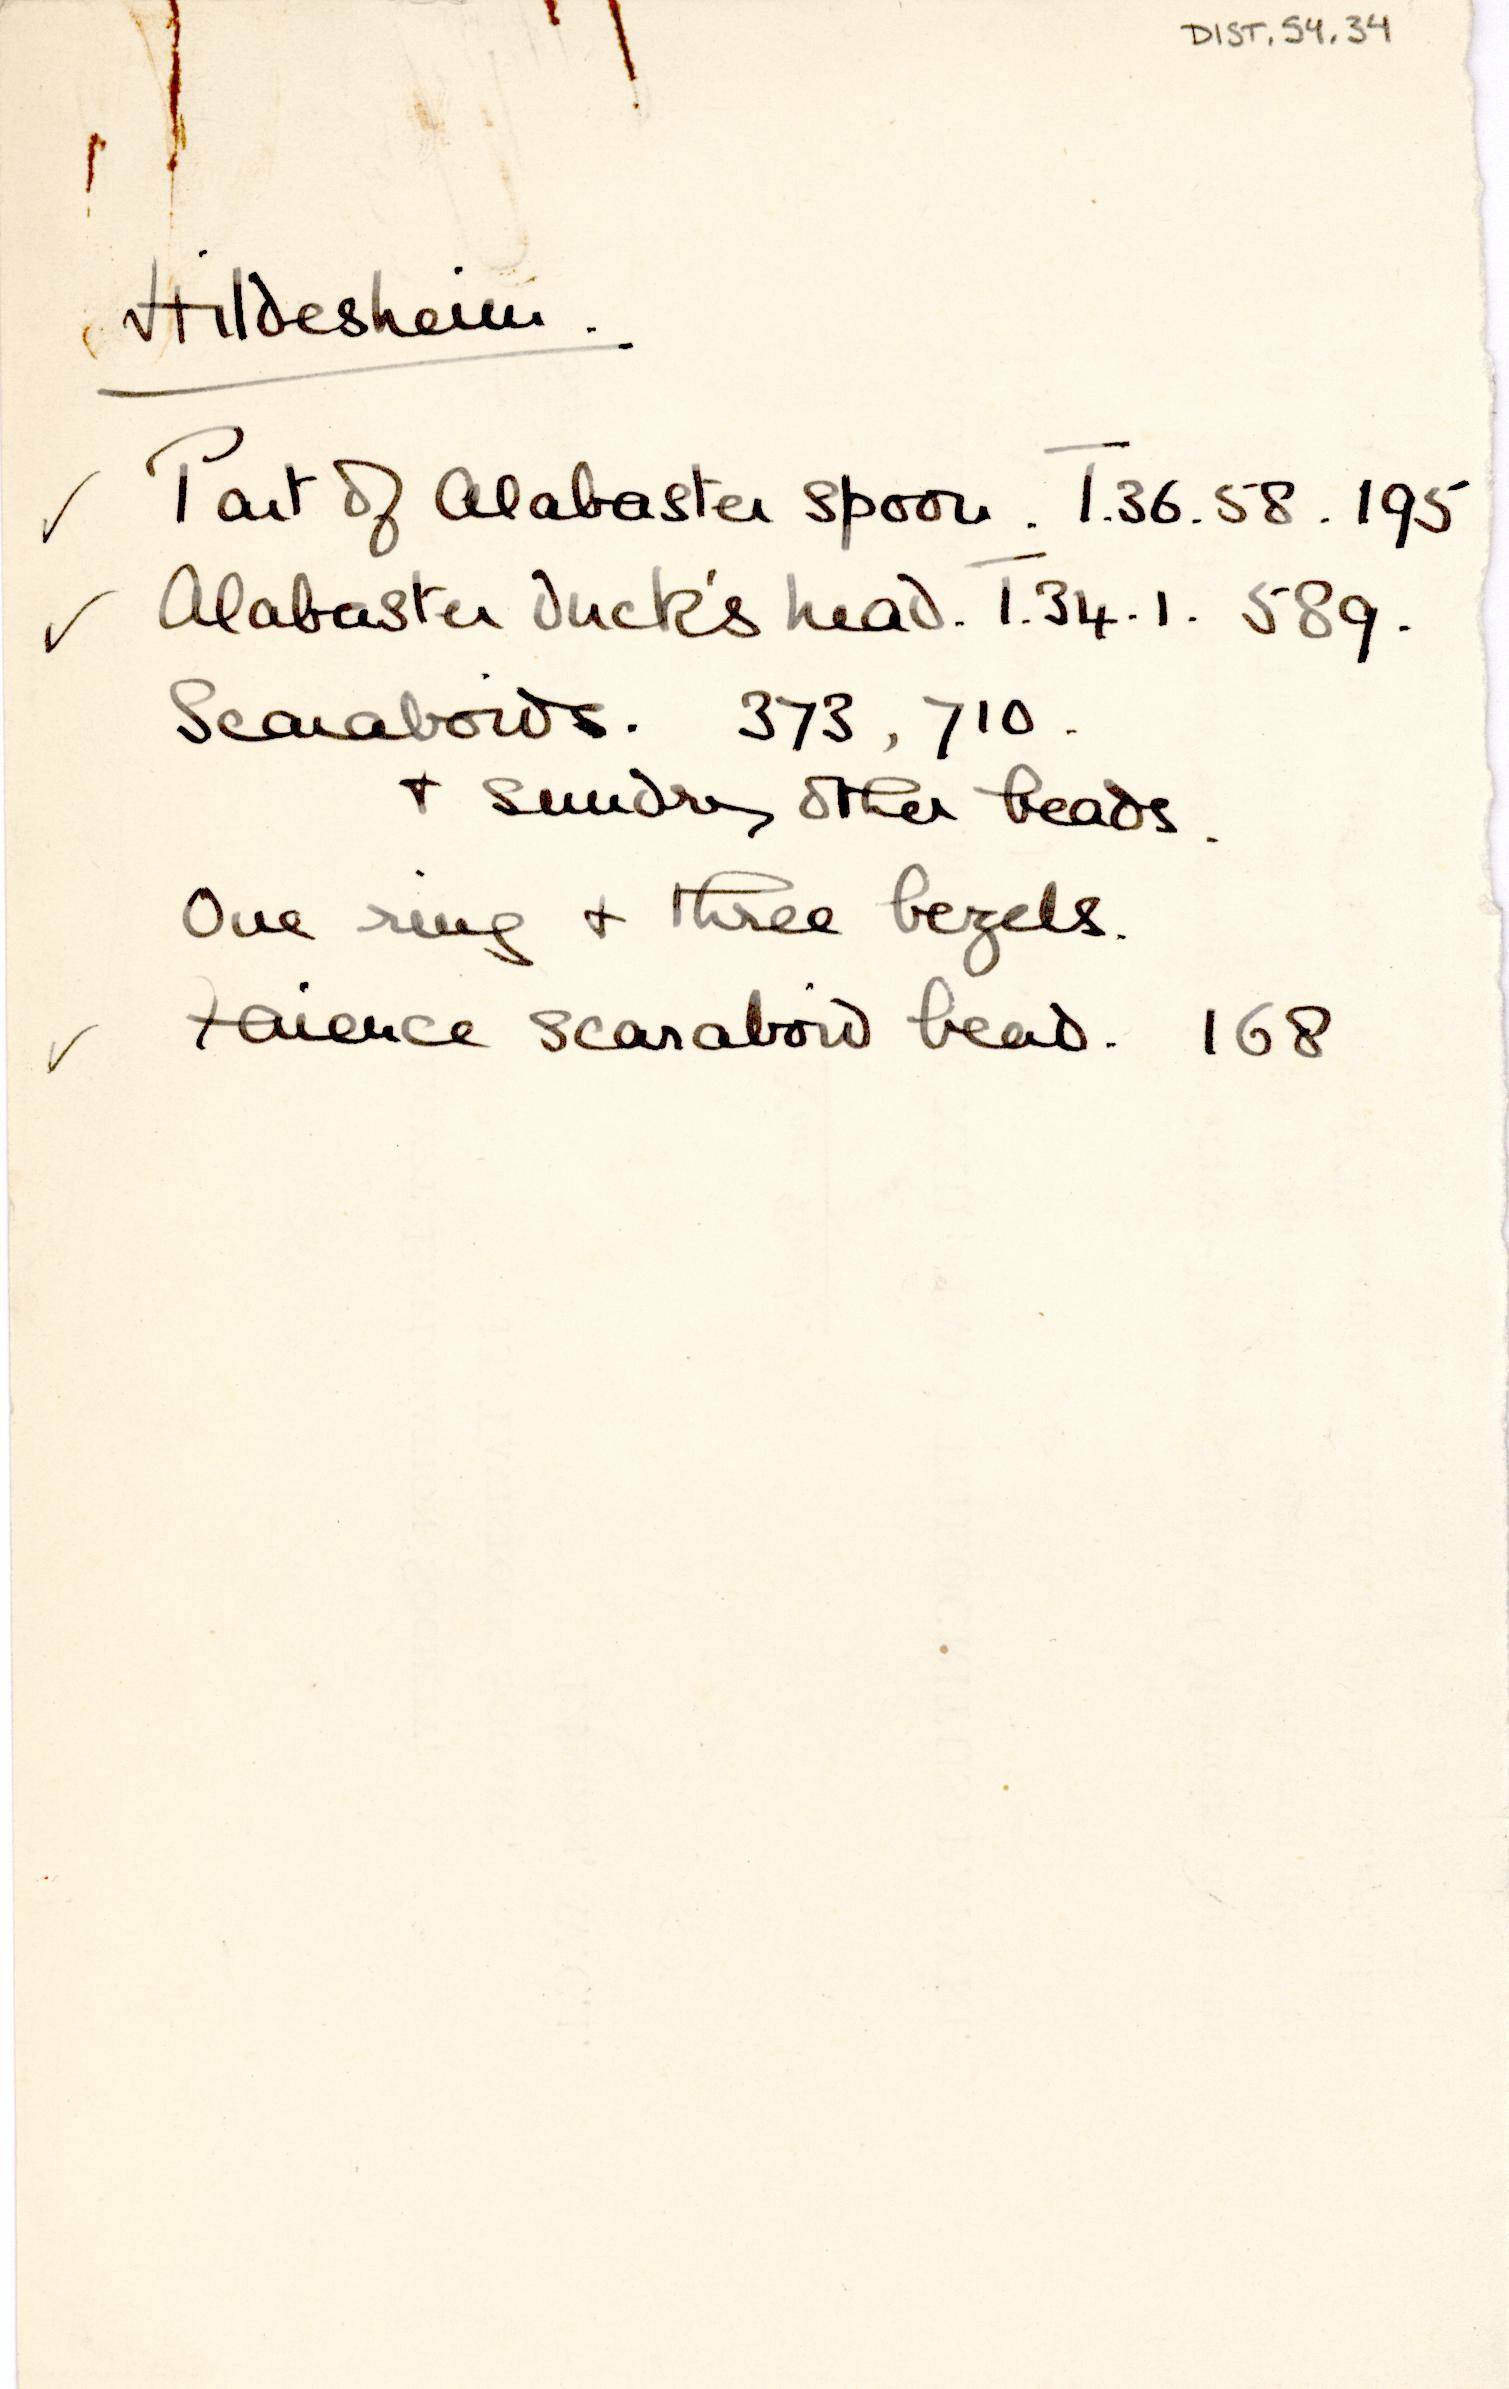 DIST. 54.34
Hildesheim.
✓ Part of Alabaster spoon. T.36.58. 195
✓ Alabaster duck's head. T.34.1. 589.
Scaraboids. 373, 710.
+ sundry other beads.
One ring + three bezels.
✓ Faience scaraboid bead. 168